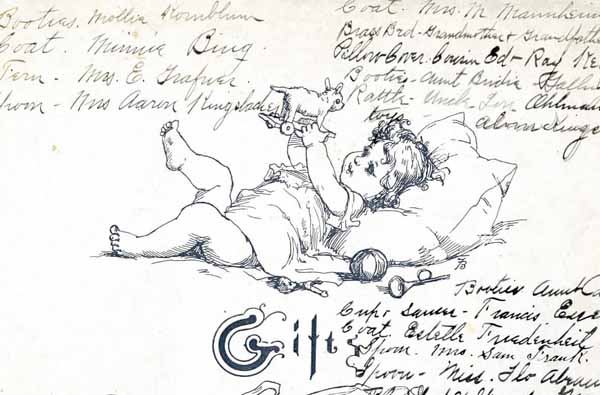 Booties. Mollie Kornblum
Coat. Minnie Bing.
Fern - Mrs. E. Grafner.
Spoon - Mrs Aaron Kingsbacher
Coat. Mrs. M. Mannheim
Brass Bed - Grandmother & Grandfather
Pillow Cover. Cousin Ed - Ray
Booties - Aunt Birdie
Rattle - Uncle
toys -
Gifts
Booties Aunt
Cup & Saucer - Francis
Coat Estelle Friedenheit
Spoon. Mrs. Sam Frank.
Spoon - Miss. Flo